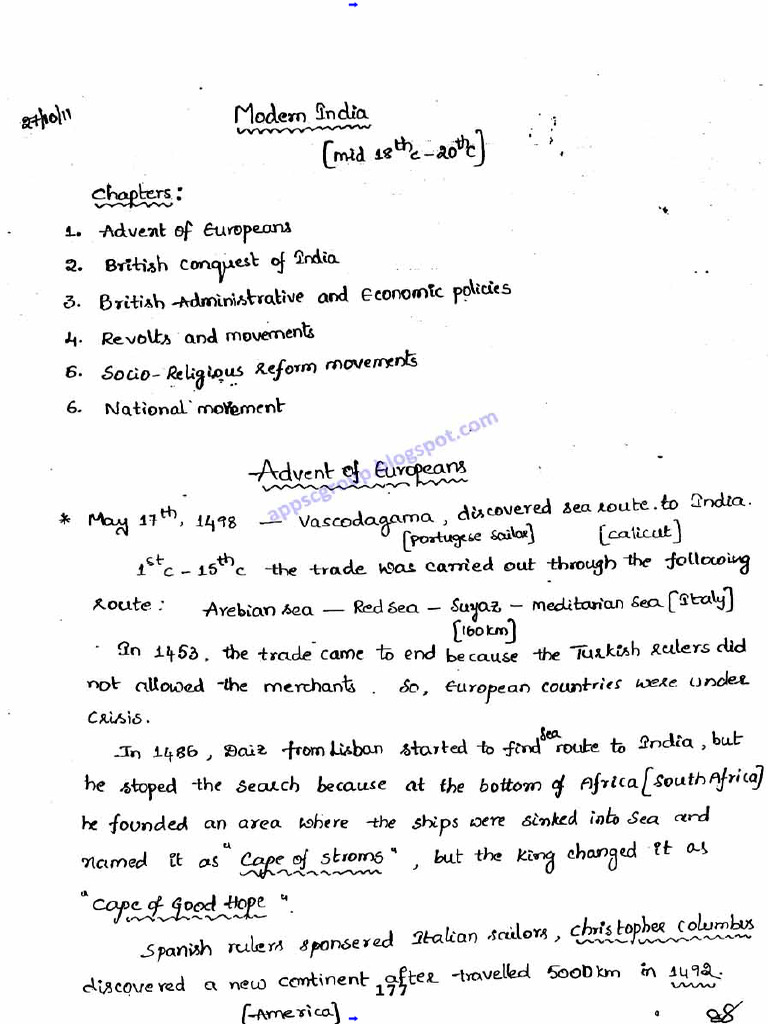 27/10/11
Modern India
[mid 18th c - 20th c]
Chapters:
1. Advent of Europeans
2. British conquest of India
3. British Administrative and Economic policies
4. Revolts and movements
5. Socio-Religious Reform movements
6. National movement
Advent of Europeans
* May 17th, 1498 — Vascodagama, discovered sea route to India.
[portugese sailor] [calicut]
1st c - 15th c the trade was carried out through the following
route: Arebian sea — Red sea - Suyaz - meditarian sea [Italy]
[160km]
In 1453, the trade came to end because the Turkish rulers did
not allowed the merchants. So, European countries were under
crisis.
In 1486, Daiz from Lisban started to find sea route to India, but
he stoped the search because at the bottom of Africa [South Africa]
he founded an area where the ships were sinked into sea and
named it as "Cape of stroms", but the king changed it as
"Cape of Good Hope".
Spanish rulers sponsered Italian sailors, christopher columbus
discovered a new continent after travelled 5000km in 1492.
[America]
177
appscgroup.blogspot.com